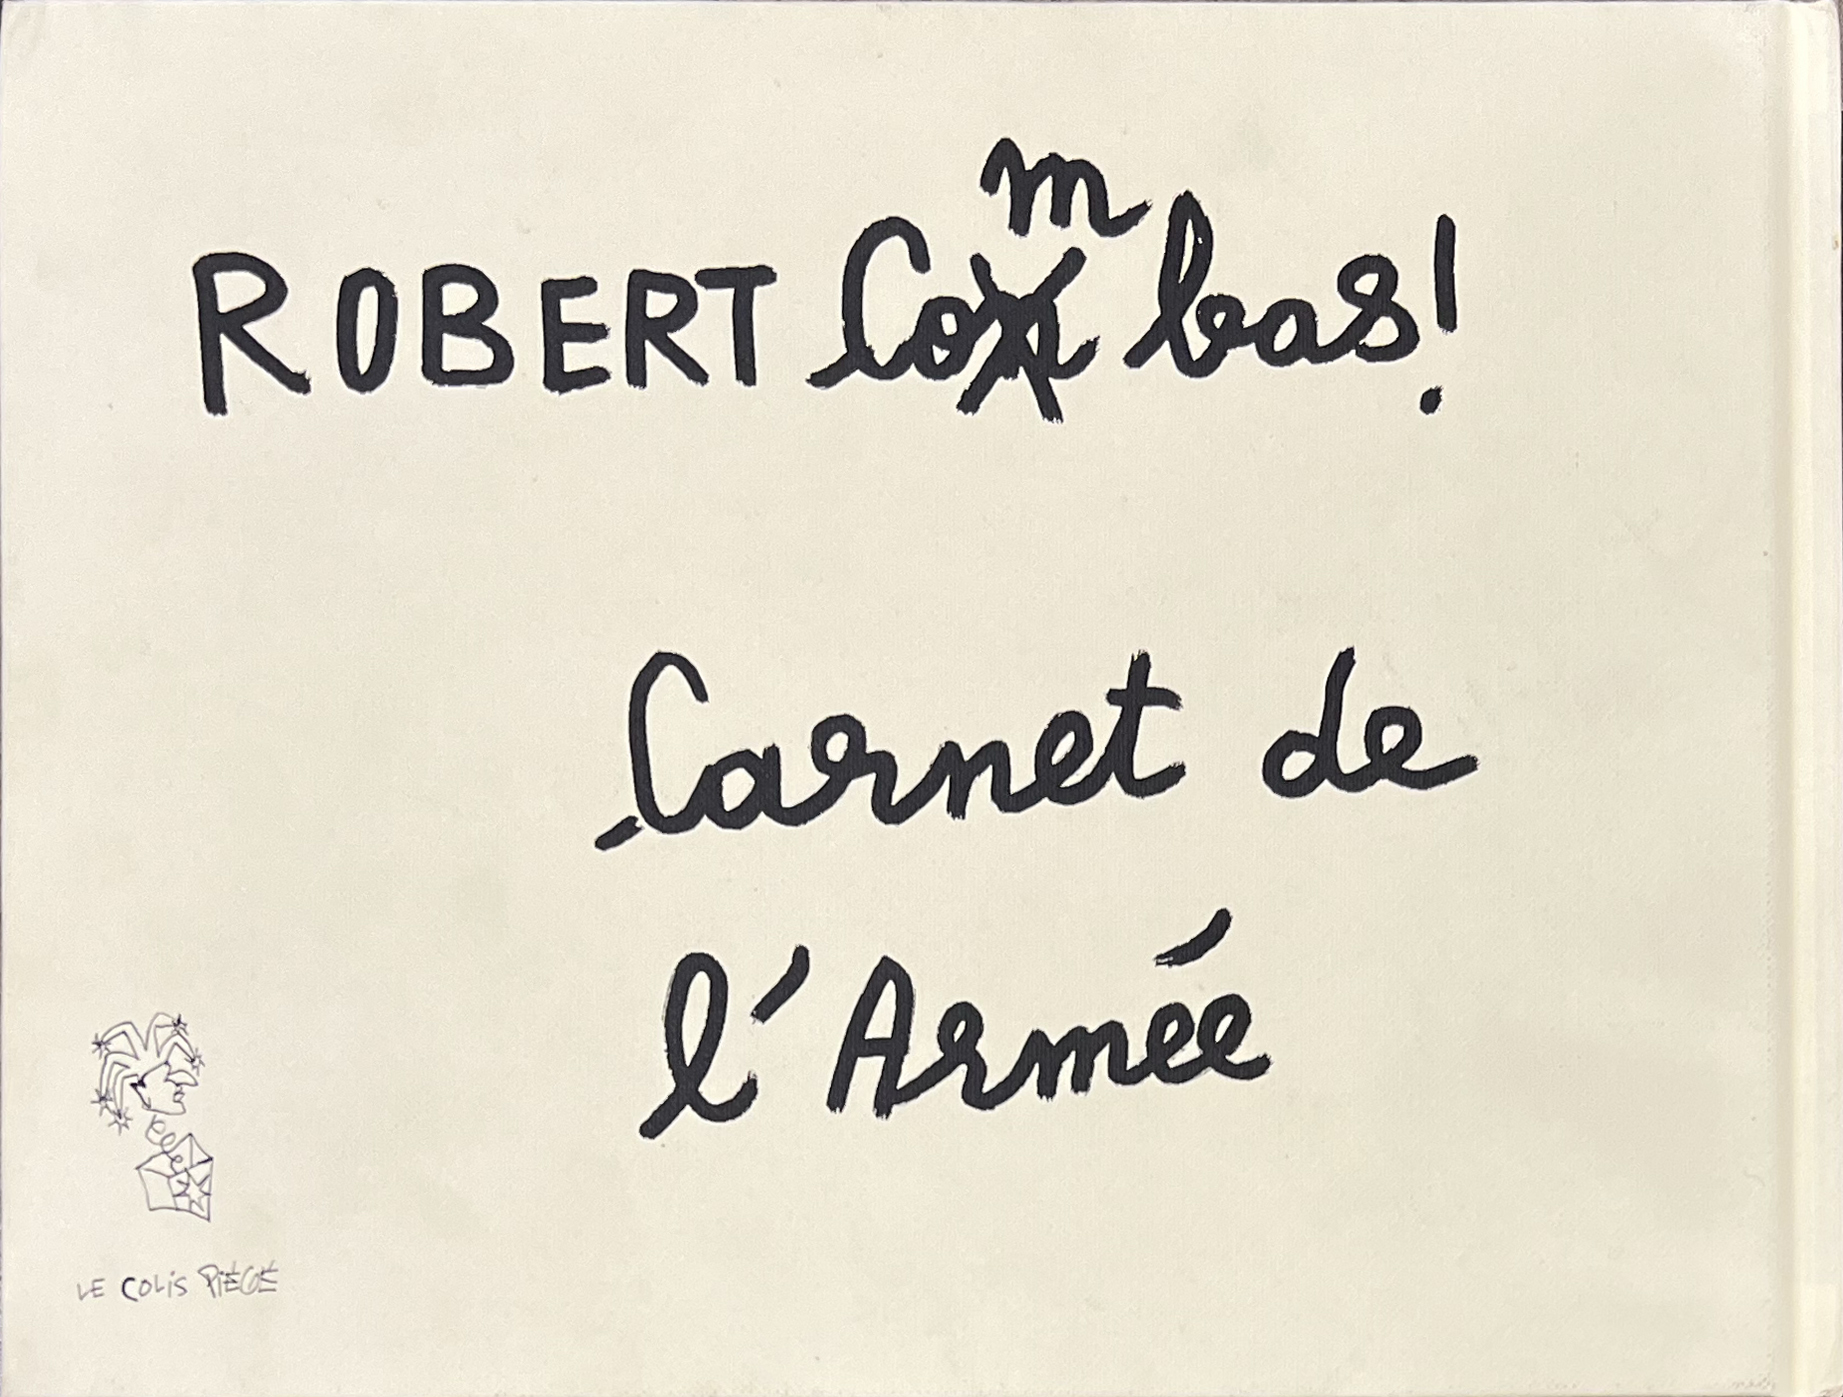 ROBERT Combas!
Carnet de
l'Armée
LE COLIS PIÉGÉ